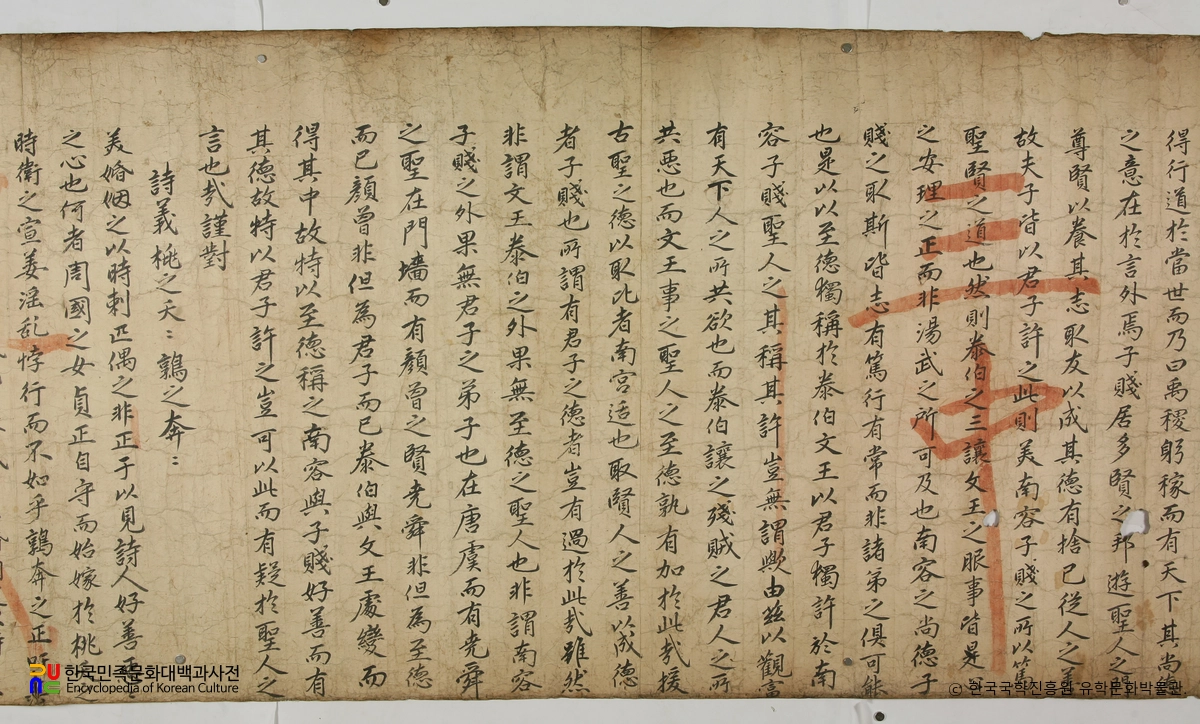 得行道於當世而乃曰禹稷躬稼而有天下其尚德
之意在於言外焉子賤居多賢之邦游聖人之門
尊賢以養其志取友以成其德有捨己從人之美
故夫子皆以君子許之此則美南容子賤之所以篤
聖賢之道也然則泰伯之三讓文王之服事皆是
之安理之正而非湯武之所可及也南容之尚德子
賤之取斯皆志有篤行有常而非諸弟之俱可能
也是以以至德獨稱於泰伯文王以君子獨許於南
容子賤聖人之其稱其許豈無謂歟由玆以觀富
有天下人之所共欲也而泰伯讓之殘賊之君人之所
共惡也而文王事之聖人之至德孰有加於此哉援
古聖之德以取比者南宮适也取賢人之善以成德
者子賤也所謂有君子之德者豈有過於此哉雖然
非謂文王泰伯之外果無至德之聖人也非謂南容
子賤之外果無君子之弟子也在唐虞而有堯舜
之聖在門墻而有顔曾之賢堯舜非但為至德
而已顔曾非但為君子而已泰伯與文王處變而
得其中故特以至德稱之南容與子賤好善而有
其德故特以君子許之豈可以此而有疑於聖人之
言也哉謹對
詩義 桃之夭〻 鶉之奔〻
美婚姻之以時刺匹偶之非正于以見詩人好善
之心也何者周國之女貞正自守而始嫁於桃夭
時衛之宣姜淫乱悖行而不如乎鶉奔之正
한국민족문화대백과사전
Encyclopedia of Korean Culture
© 한국국학진흥원 유학문화박물관